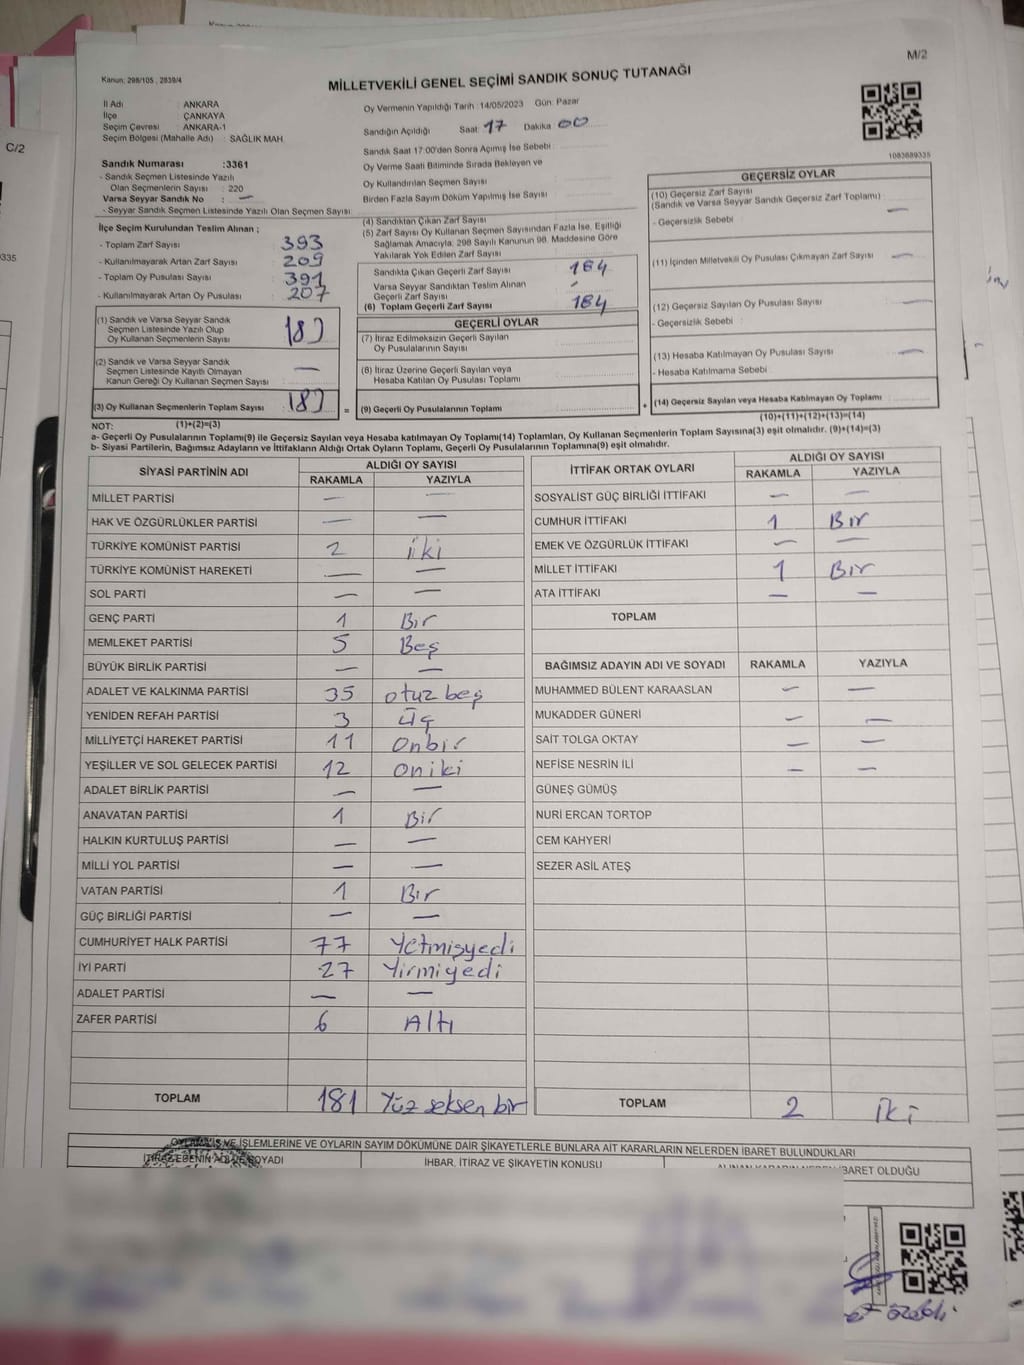 M/2
Kanun: 298/105 ; 2839/4
MİLLETVEKİLİ GENEL SEÇİMİ SANDIK SONUÇ TUTANAĞI
İl Adı : ANKARA
İlçe : ÇANKAYA
Seçim Çevresi : ANKARA-1
Seçim Bölgesi (Mahalle Adı) : SAĞLIK MAH
Oy Vermenin Yapıldığı Tarih :14/05/2023 Gün: Pazar
Sandığın Açıldığı Saat: 17 Dakika 00
Sandık Saat 17:00'den Sonra Açımış İse Sebebi :
Oy Verme Saati Bitiminde Sırada Bekleyen ve
Oy Kullandırılan Seçmen Sayısı :
Birden Fazla Sayım Döküm Yapılmış İse Sayısı :
1083689335
C/2
335
Sandık Numarası :3361
- Sandık Seçmen Listesinde Yazılı
Olan Seçmenlerin Sayısı : 220
Varsa Seyyar Sandık No : —
- Seyyar Sandık Seçmen Listesinde Yazılı Olan Seçmen Sayısı:
İlçe Seçim Kurulundan Teslim Alınan ;
- Toplam Zarf Sayısı : 393
- Kullanılmayarak Artan Zarf Sayısı : 209
- Toplam Oy Pusulası Sayısı : 391
- Kullanılmayarak Artan Oy Pusulası : 207
(1) Sandık ve Varsa Seyyar Sandık
Seçmen Listesinde Yazılı Olup
Oy Kullanan Seçmenlerin Sayısı
(2) Sandık ve Varsa Seyyar Sandık
Seçmen Listesinde Kayıtlı Olmayan
Kanun Gereği Oy Kullanan Seçmen Sayısı : —
(3) Oy Kullanan Seçmenlerin Toplam Sayısı
(1)+(2)=(3)
(4) Sandıktan Çıkan Zarf Sayısı :
(5) Zarf Sayısı Oy Kullanan Seçmen Sayısından Fazla İse, Eşitliği
Sağlamak Amacıyla, 298 Sayılı Kanunun 98. Maddesine Göre
Yakılarak Yok Edilen Zarf Sayısı :
Sandıkta Çıkan Geçerli Zarf Sayısı : 184
Varsa Seyyar Sandıktan Teslim Alınan
Geçerli Zarf Sayısı : -
(6) Toplam Geçerli Zarf Sayısı : 184
GEÇERLİ OYLAR
(7) İtiraz Edilmeksizin Geçerli Sayılan
Oy Pusulalarının Sayısı :
(8) İtiraz Üzerine Geçerli Sayılan veya
Hesaba Katılan Oy Pusulası Toplamı :
= (9) Geçerli Oy Pusulalarının Toplamı :
GEÇERSİZ OYLAR
(10) Geçersiz Zarf Sayısı
(Sandık ve Varsa Seyyar Sandık Geçersiz Zarf Toplamı) : —
- Geçersizlik Sebebi :
(11) İçinden Milletvekili Oy Pusulası Çıkmayan Zarf Sayısı : —
(12) Geçersiz Sayılan Oy Pusulası Sayısı : —
- Geçersizlik Sebebi :
(13) Hesaba Katılmayan Oy Pusulası Sayısı : —
- Hesaba Katılmama Sebebi :
+ (14) Geçersiz Sayılan veya Hesaba Katılmayan Oy Toplamı :
(10)+(11)+(12)+(13)=(14)
NOT:
a- Geçerli Oy Pusulalarının Toplamı(9) ile Geçersiz Sayılan veya Hesaba katılmayan Oy Toplamı(14) Toplamları, Oy Kullanan Seçmenlerin Toplam Sayısına(3) eşit olmalıdır. (9)+(14)=(3)
b- Siyasi Partilerin, Bağımsız Adayların ve İttifakların Aldığı Ortak Oyların Toplamı, Geçerli Oy Pusulalarının Toplamına(9) eşit olmalıdır.
SİYASİ PARTİNİN ADI ALDIĞI OY SAYISI
RAKAMLA YAZIYLA
MİLLET PARTİSİ — —
HAK VE ÖZGÜRLÜKLER PARTİSİ — —
TÜRKİYE KOMÜNİST PARTİSİ 2 iki
TÜRKİYE KOMÜNİST HAREKETİ — —
SOL PARTİ — —
GENÇ PARTİ 1 Bir
MEMLEKET PARTİSİ 5 Beş
BÜYÜK BİRLİK PARTİSİ — —
ADALET VE KALKINMA PARTİSİ 35 otuz beş
YENİDEN REFAH PARTİSİ 3 üç
MİLLİYETÇİ HAREKET PARTİSİ 11 Onbir
YEŞİLLER VE SOL GELECEK PARTİSİ 12 on iki
ADALET BİRLİK PARTİSİ — —
ANAVATAN PARTİSİ 1 Bir
HALKIN KURTULUŞ PARTİSİ — —
MİLLİ YOL PARTİSİ — —
VATAN PARTİSİ 1 Bir
GÜÇ BİRLİĞİ PARTİSİ — —
CUMHURİYET HALK PARTİSİ 77 Yetmişyedi
İYİ PARTİ 27 Yirmiyedi
ADALET PARTİSİ — —
ZAFER PARTİSİ 6 Altı
TOPLAM 181 Yüz seksen bir
İTTİFAK ORTAK OYLARI ALDIĞI OY SAYISI
RAKAMLA YAZIYLA
SOSYALİST GÜÇ BİRLİĞİ İTTİFAKI — —
CUMHUR İTTİFAKI 1 Bir
EMEK VE ÖZGÜRLÜK İTTİFAKI — —
MİLLET İTTİFAKI 1 Bir
ATA İTTİFAKI — —
TOPLAM
BAĞIMSIZ ADAYIN ADI VE SOYADI RAKAMLA YAZIYLA
MUHAMMED BÜLENT KARAASLAN — —
MUKADDER GÜNERİ — —
SAİT TOLGA OKTAY — —
NEFİSE NESRİN İLİ — —
GÜNEŞ GÜMÜŞ
NURİ ERCAN TORTOP
CEM KAHYERİ
SEZER ASİL ATEŞ
TOPLAM 2 iki
OYLAMA İŞ VE İŞLEMLERİNE VE OYLARIN SAYIM DÖKÜMÜNE DAİR ŞİKAYETLERLE BUNLARA AİT KARARLARIN NELERDEN İBARET BULUNDUKLARI
İTİRAZ EDENİN ADI VE SOYADI İHBAR, İTİRAZ VE ŞİKAYETİN KONUSU ALINAN KARARIN NEDEN İBARET OLDUĞU